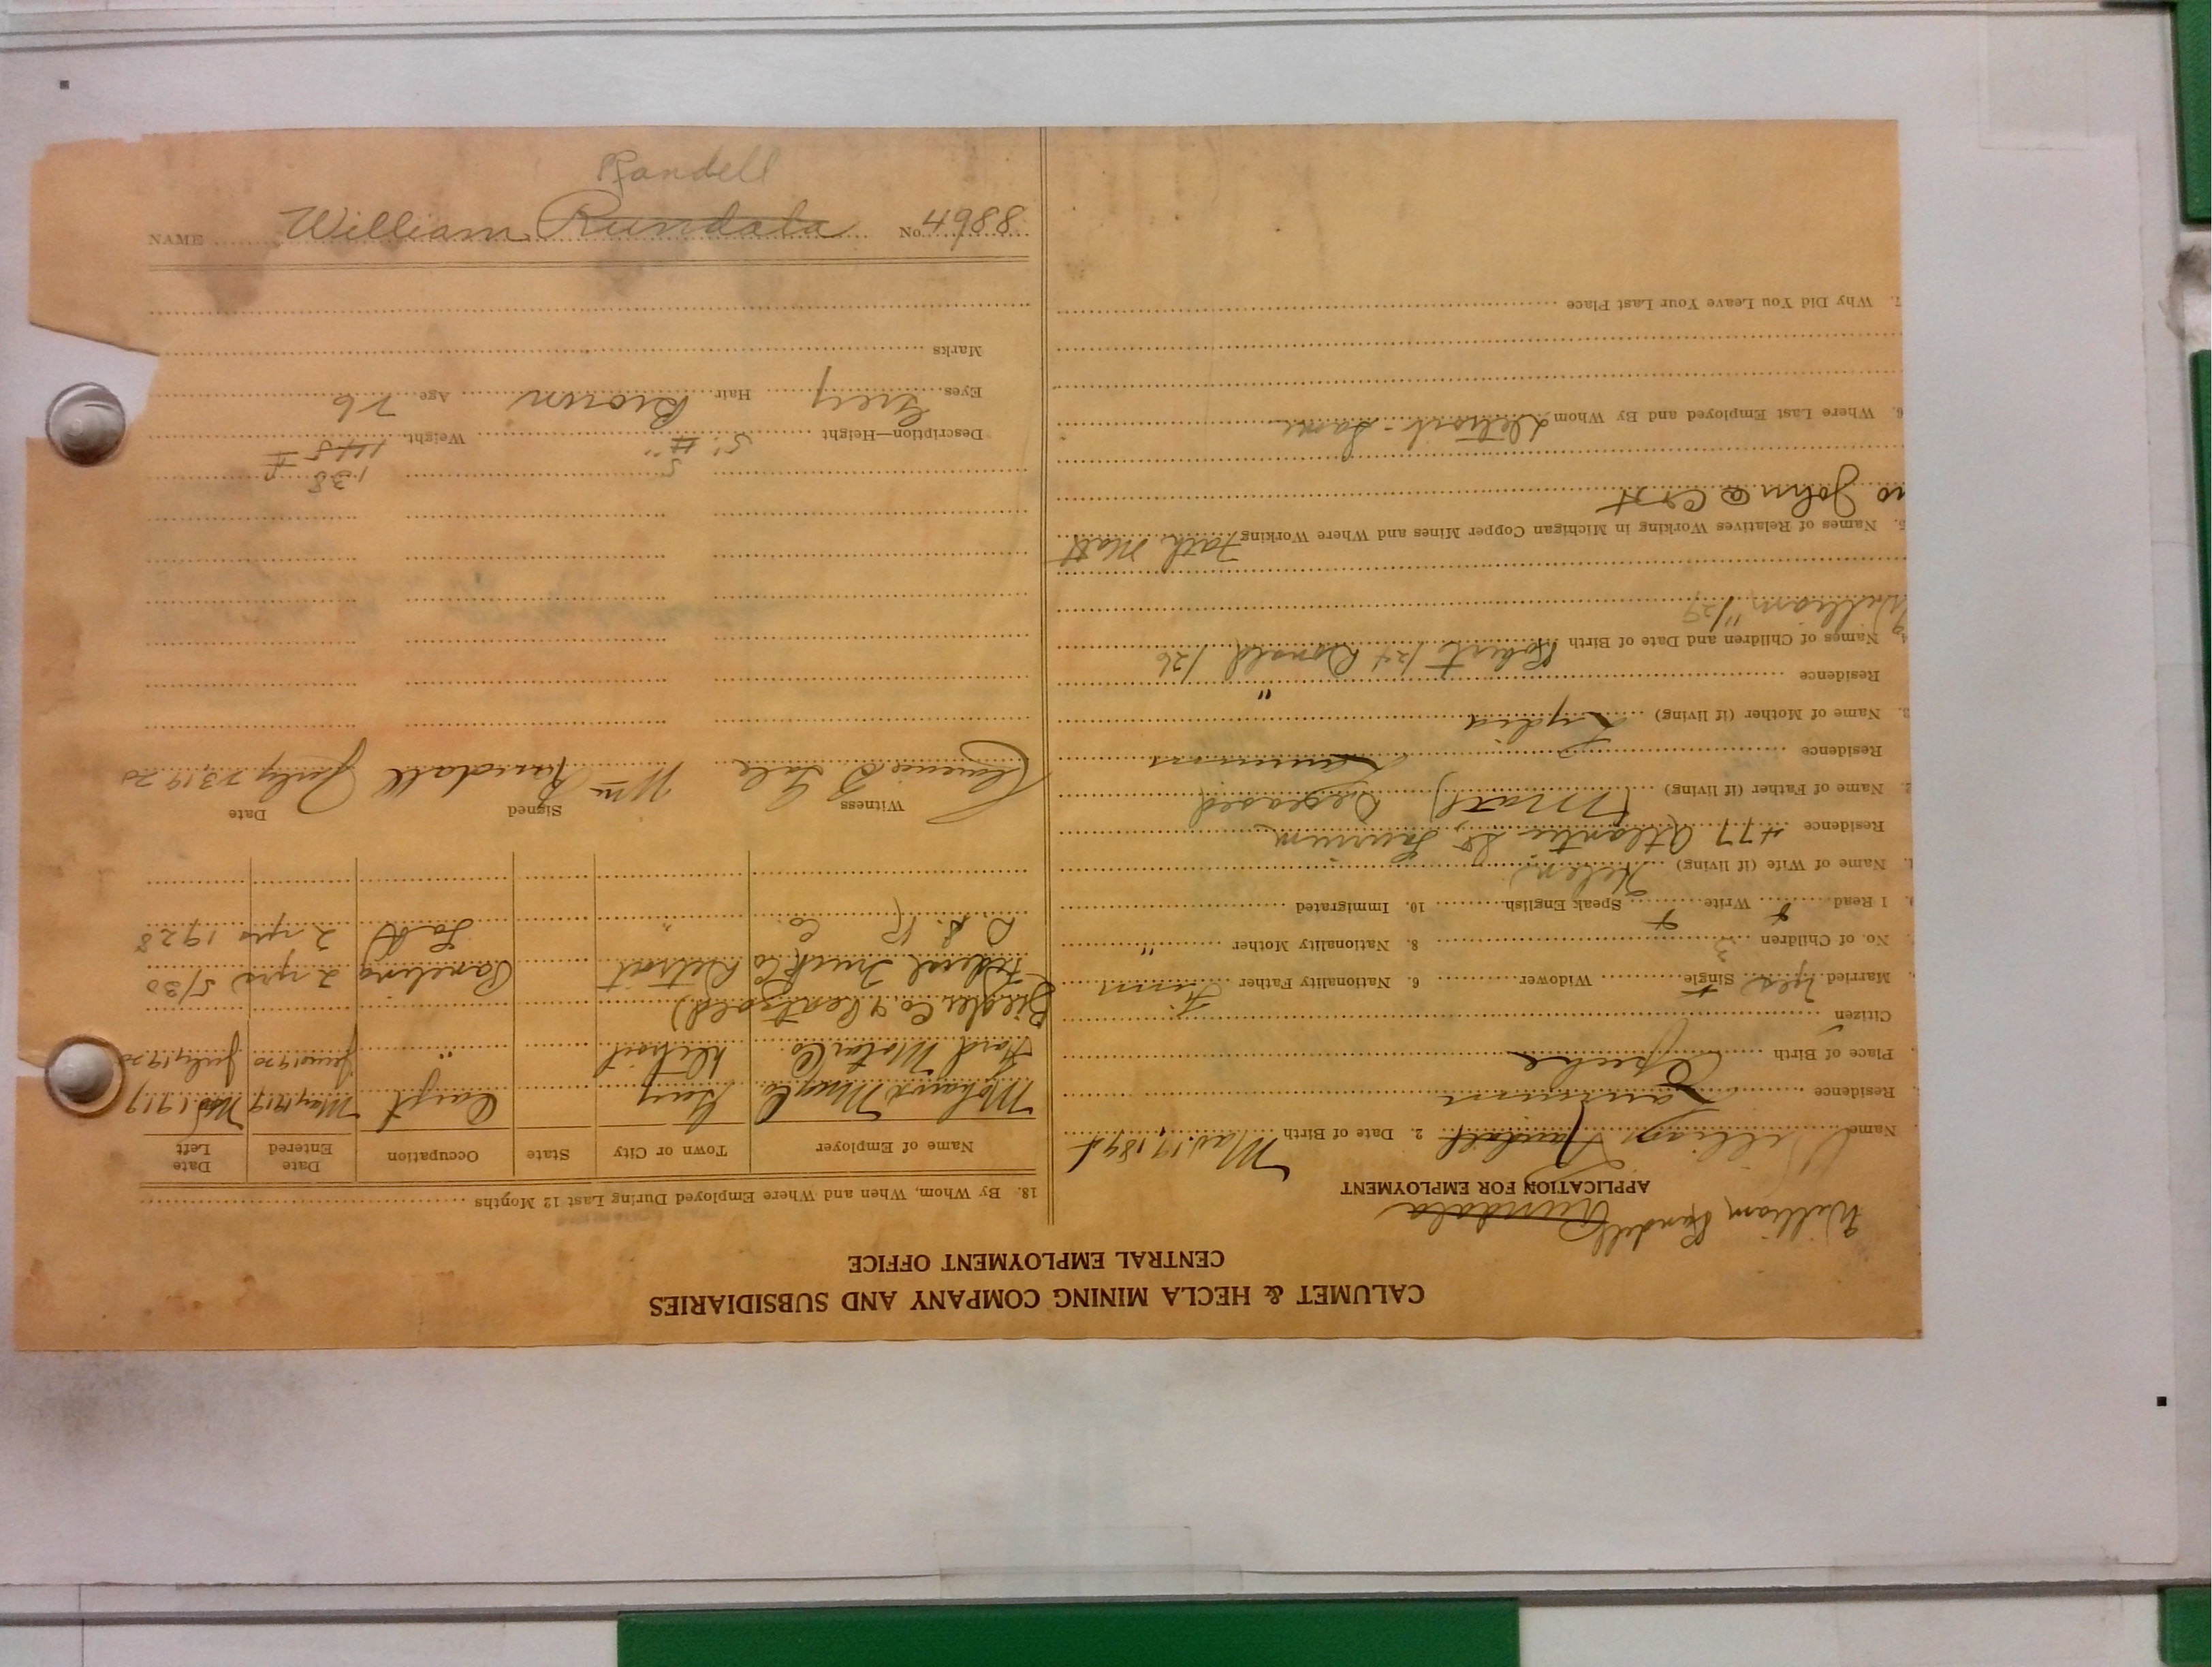 Randell
NAME William Rundala No. 4988
CALUMET & HECLA MINING COMPANY AND SUBSIDIARIES
CENTRAL EMPLOYMENT OFFICE
William Randell Rundala
APPLICATION FOR EMPLOYMENT
Name William Randall 2. Date of Birth 17, 1894
Residence Laurium
Place of Birth
Citizen
Married Yes Single Widower 6. Nationality Father Finn
No. of Children 3 8. Nationality Mother "
9. I Read Write Speak English 10. Immigrated
Name of Wife (if living) Helen
Residence 477 Atlantic St Laurium
2. Name of Father (if living) (Matt) Deceased
Residence Laurium
3. Name of Mother (if living) Lydia
Residence "
4. Names of Children and Date of Birth Robert /24 Ronald /26
William 11/29
5. Names of Relatives Working in Michigan Copper Mines and Where Working Fath. Matt
John @
6. Where Last Employed and By Whom Detroit - Same
7. Why Did You Leave Your Last Place
18. By Whom, When and Where Employed During Last 12 Months
Name of Employer Town or City State Occupation Date Entered Date Left
Mohawk Mng Co Gay Carpt May 1919 1919
Ford Motor Co. Detroit " 1920 July 1920
Federal Truck Co Detroit Paneling 2 yrs 5/30
D. S. R. Co. " 2 yrs 1928
Witness Signed Date
Clarence Wm Randall July 23 1920
138
5
Description—Height 5' 11" Weight 145
Eyes Grey Hair Brown Age 26
Marks